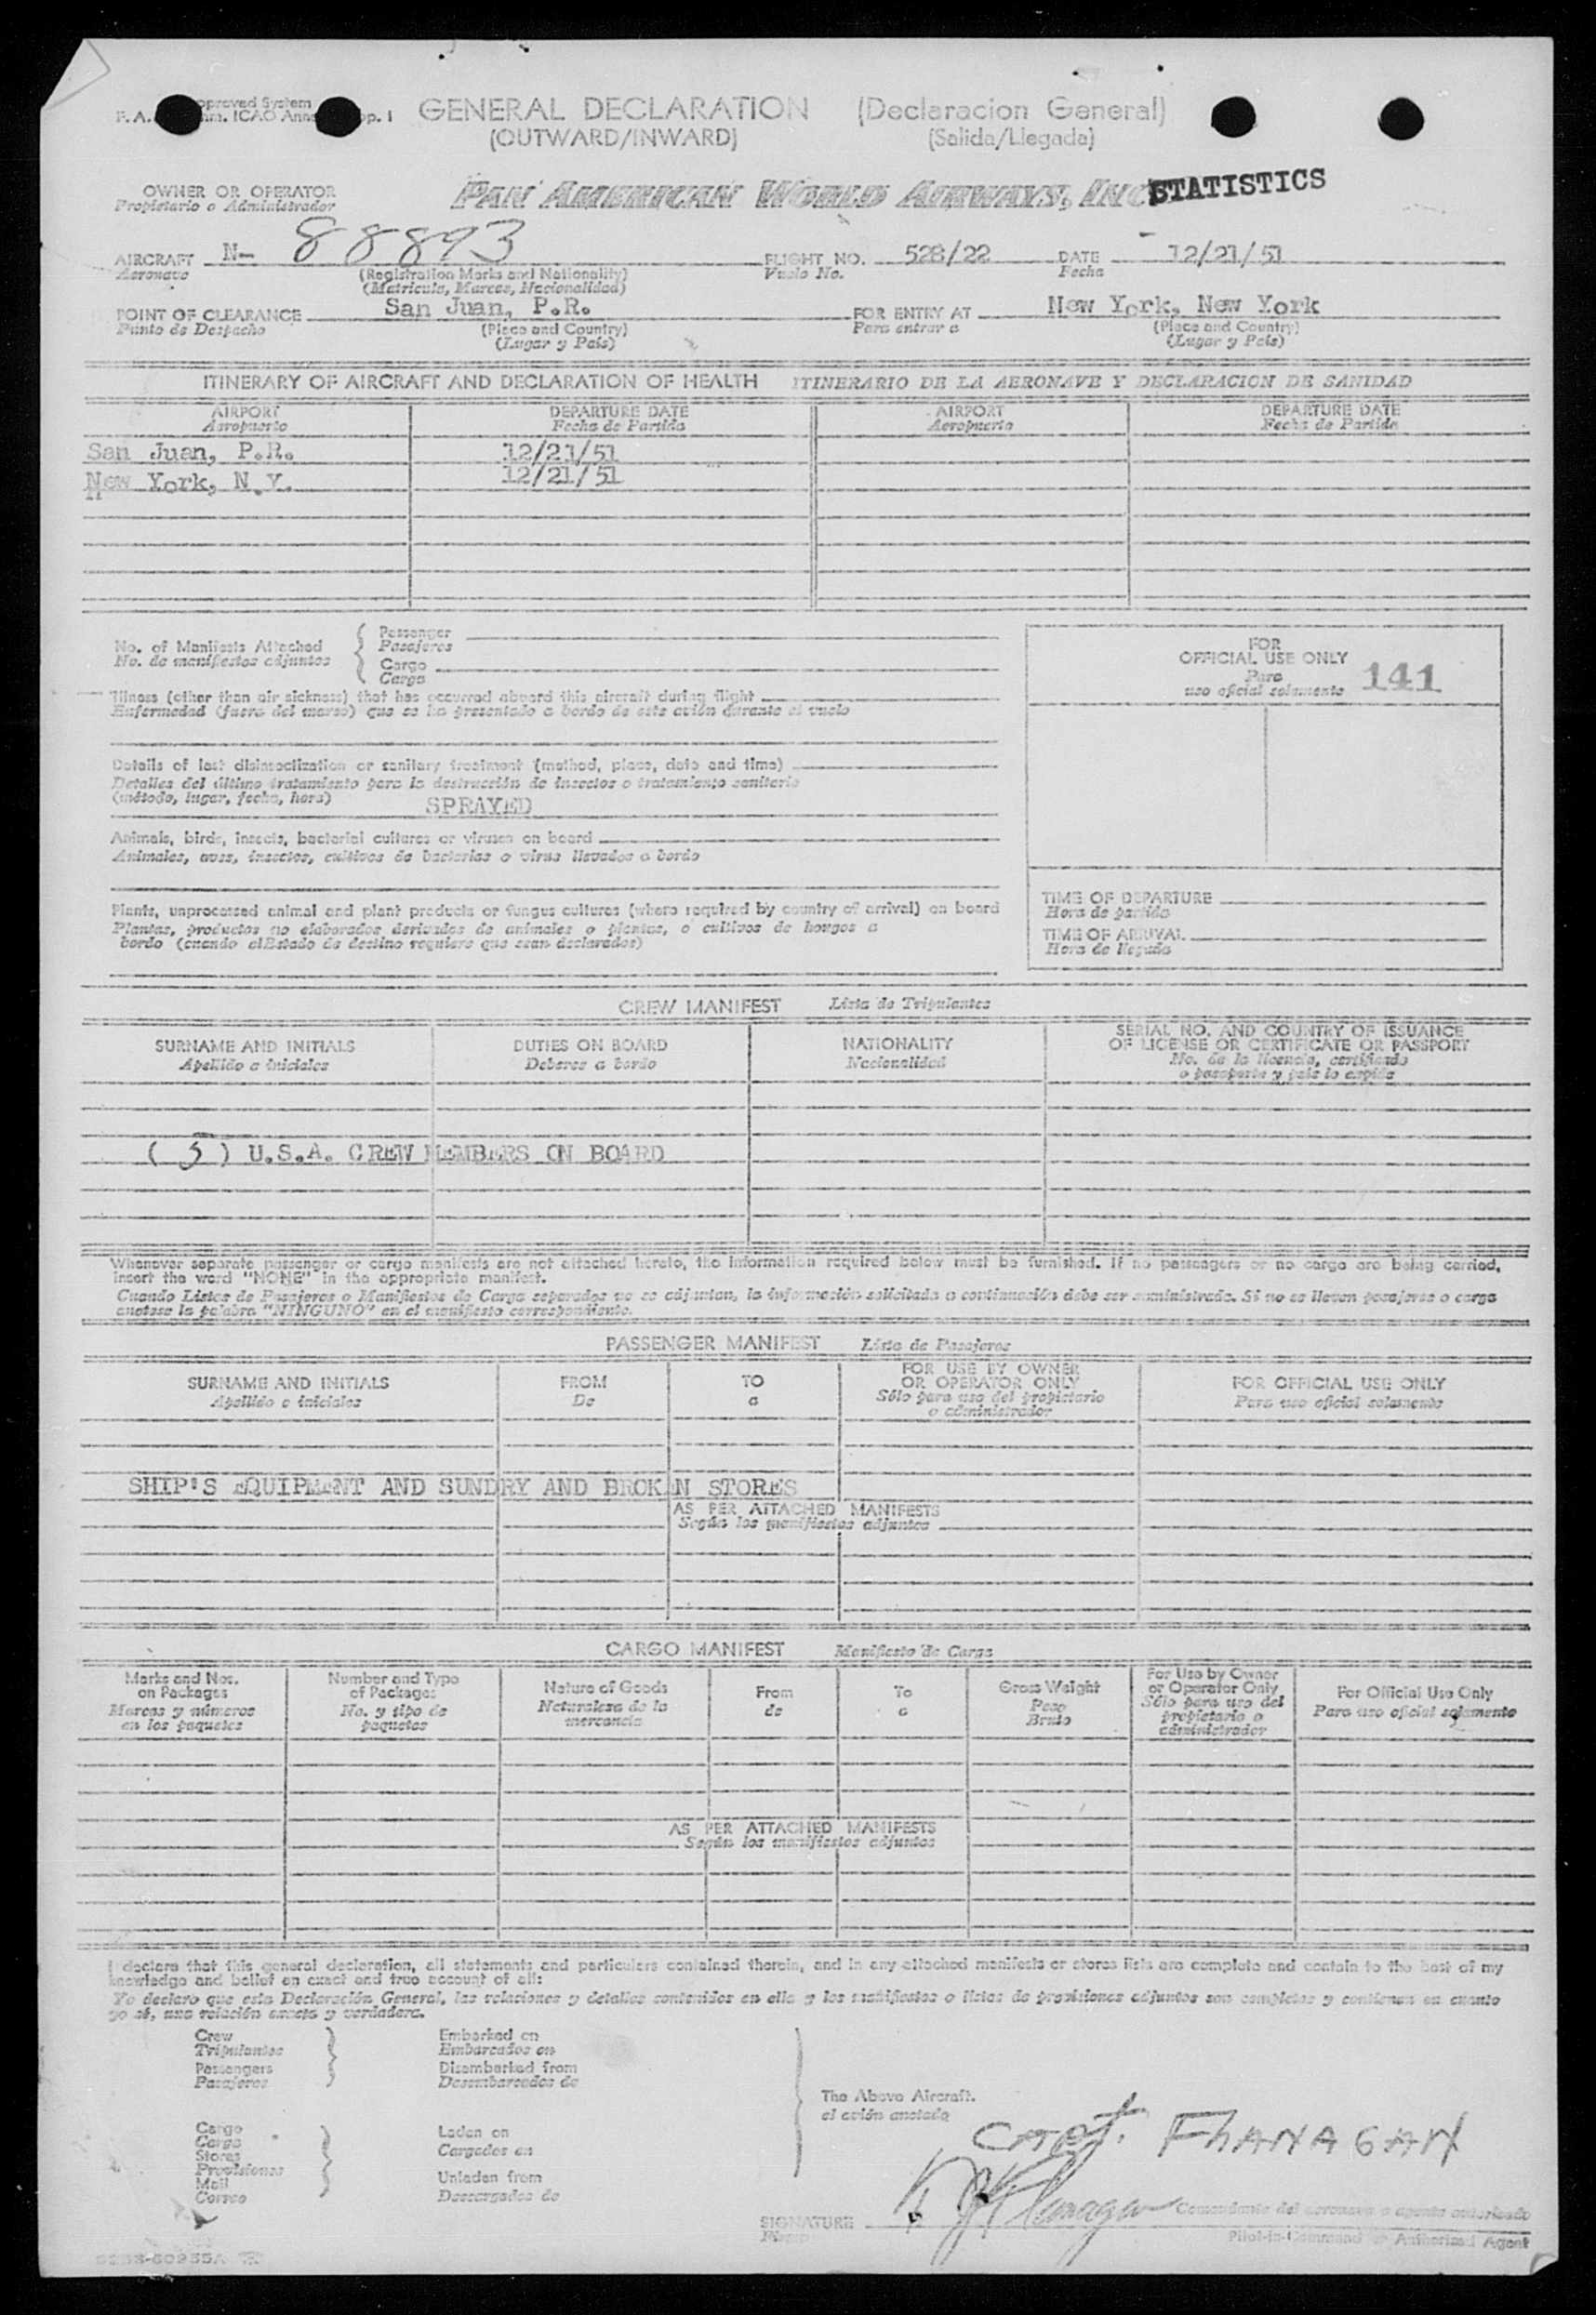 GENERAL DECLARATION (Declaracion General)
(OUTWARD/INWARD) (Salida/Llegada)
OWNER OR OPERATOR PAN AMERICAN WORLD AIRWAYS, INC STATISTICS
Propietario o Administrador
AIRCRAFT N- 88893 FLIGHT NO. 528/22 DATE 12/21/51
Aeronave (Registration Marks and Nationality) Vuelo No. Fecha
(Matricula, Marcas, Nacionalidad)
POINT OF CLEARANCE San Juan, P.R. FOR ENTRY AT New York, New York
Punto de Despacho (Place and Country) Para entrar a (Place and Country)
(Lugar y País) (Lugar y País)
ITINERARY OF AIRCRAFT AND DECLARATION OF HEALTH ITINERARIO DE LA AERONAVE Y DECLARACION DE SANIDAD
AIRPORT DEPARTURE DATE AIRPORT DEPARTURE DATE
Aeropuerto Fecha de Partida Aeropuerto Fecha de Partida
San Juan, P.R. 12/21/51
New York, N.Y. 12/21/51
No. of Manifests Attached Passenger
No. de manifiestos adjuntos Pasajeros
Cargo
Carga
Illness (other than air sickness) that has occurred aboard this aircraft during flight
Enfermedad (fuera del mareo) que se ha presentado a bordo de este avión durante el vuelo
Details of last disinsectization or sanitary treatment (method, place, date and time)
Detalles del último tratamiento para la destrucción de insectos o tratamiento sanitario
(método, lugar, fecha, hora) SPRAYED
Animals, birds, insects, bacterial cultures or viruses on board
Animales, aves, insectos, cultivos de bacterias o virus llevados a bordo
Plants, unprocessed animal and plant products or fungus cultures (where required by country of arrival) on board
Plantas, productos no elaborados derivados de animales o plantas, o cultivos de hongos a
bordo (cuando el Estado de destino requiere que sean declarados)
FOR
OFFICIAL USE ONLY
Para
uso oficial solamente 141
TIME OF DEPARTURE
Hora de partida
TIME OF ARRIVAL
Hora de llegada
CREW MANIFEST Lista de Tripulantes
SURNAME AND INITIALS DUTIES ON BOARD NATIONALITY SERIAL NO. AND COUNTRY OF ISSUANCE
OF LICENSE OR CERTIFICATE OR PASSPORT
Apellido e iniciales Deberes a bordo Nacionalidad No. de la licencia, certificado
o pasaporte y país lo expide
( 5 ) U.S.A. CREW MEMBERS ON BOARD
Whenever separate passenger or cargo manifests are not attached hereto, the information required below must be furnished. If no passengers or no cargo are being carried,
insert the word "NONE" in the appropriate manifest.
Cuando Listas de Pasajeros o Manifiestos de Carga separados no se adjuntan, la información solicitada a continuación debe ser suministrada. Si no se llevan pasajeros o carga
anotese la palabra "NINGUNO" en el manifiesto correspondiente.
PASSENGER MANIFEST Lista de Pasajeros
SURNAME AND INITIALS FROM TO FOR USE BY OWNER
OR OPERATOR ONLY FOR OFFICIAL USE ONLY
Apellido e iniciales De a Sólo para uso del propietario
o administrador Para uso oficial solamente
SHIP'S EQUIPMENT AND SUNDRY AND BROKEN STORES
AS PER ATTACHED MANIFESTS
Según los manifiestos adjuntos
CARGO MANIFEST Manifiesto de Carga
Marks and Nos.
on Packages
Marcas y números
en los paquetes
Number and Type
of Packages
No. y tipo de
paquetes
Nature of Goods
Naturaleza de la
mercancia
From
de
To
a
Gross Weight
Peso
Bruto
For Use by Owner
or Operator Only
Sólo para uso del
propietario o
administrador
For Official Use Only
Para uso oficial solamente
AS PER ATTACHED MANIFESTS
Según los manifiestos adjuntos
I declare that this general declaration, all statements and particulars contained therein, and in any attached manifests or stores lists are complete and contain to the best of my
knowledge and belief an exact and true account of all:
Yo declaro que esta Declaración General, las relaciones y detalles contenidos en ella y los manifiestos o listas de provisiones adjuntos son completos y contienen en cuanto
yo sé, una relación exacta y verdadera.
Crew
Tripulantes
Passengers
Pasajeros
Embarked on
Embarcados en
Disembarked from
Desembarcados de
Cargo
Carga
Stores
Provisiones
Mail
Correo
Laden on
Cargados en
Unladen from
Descargados de
The Above Aircraft.
el avión anotado
CAPT. FLANAGAN
SIGNATURE Flanagan Comandante del aeronave o agente autorizado
Firma Pilot-in-Command or Authorized Agent